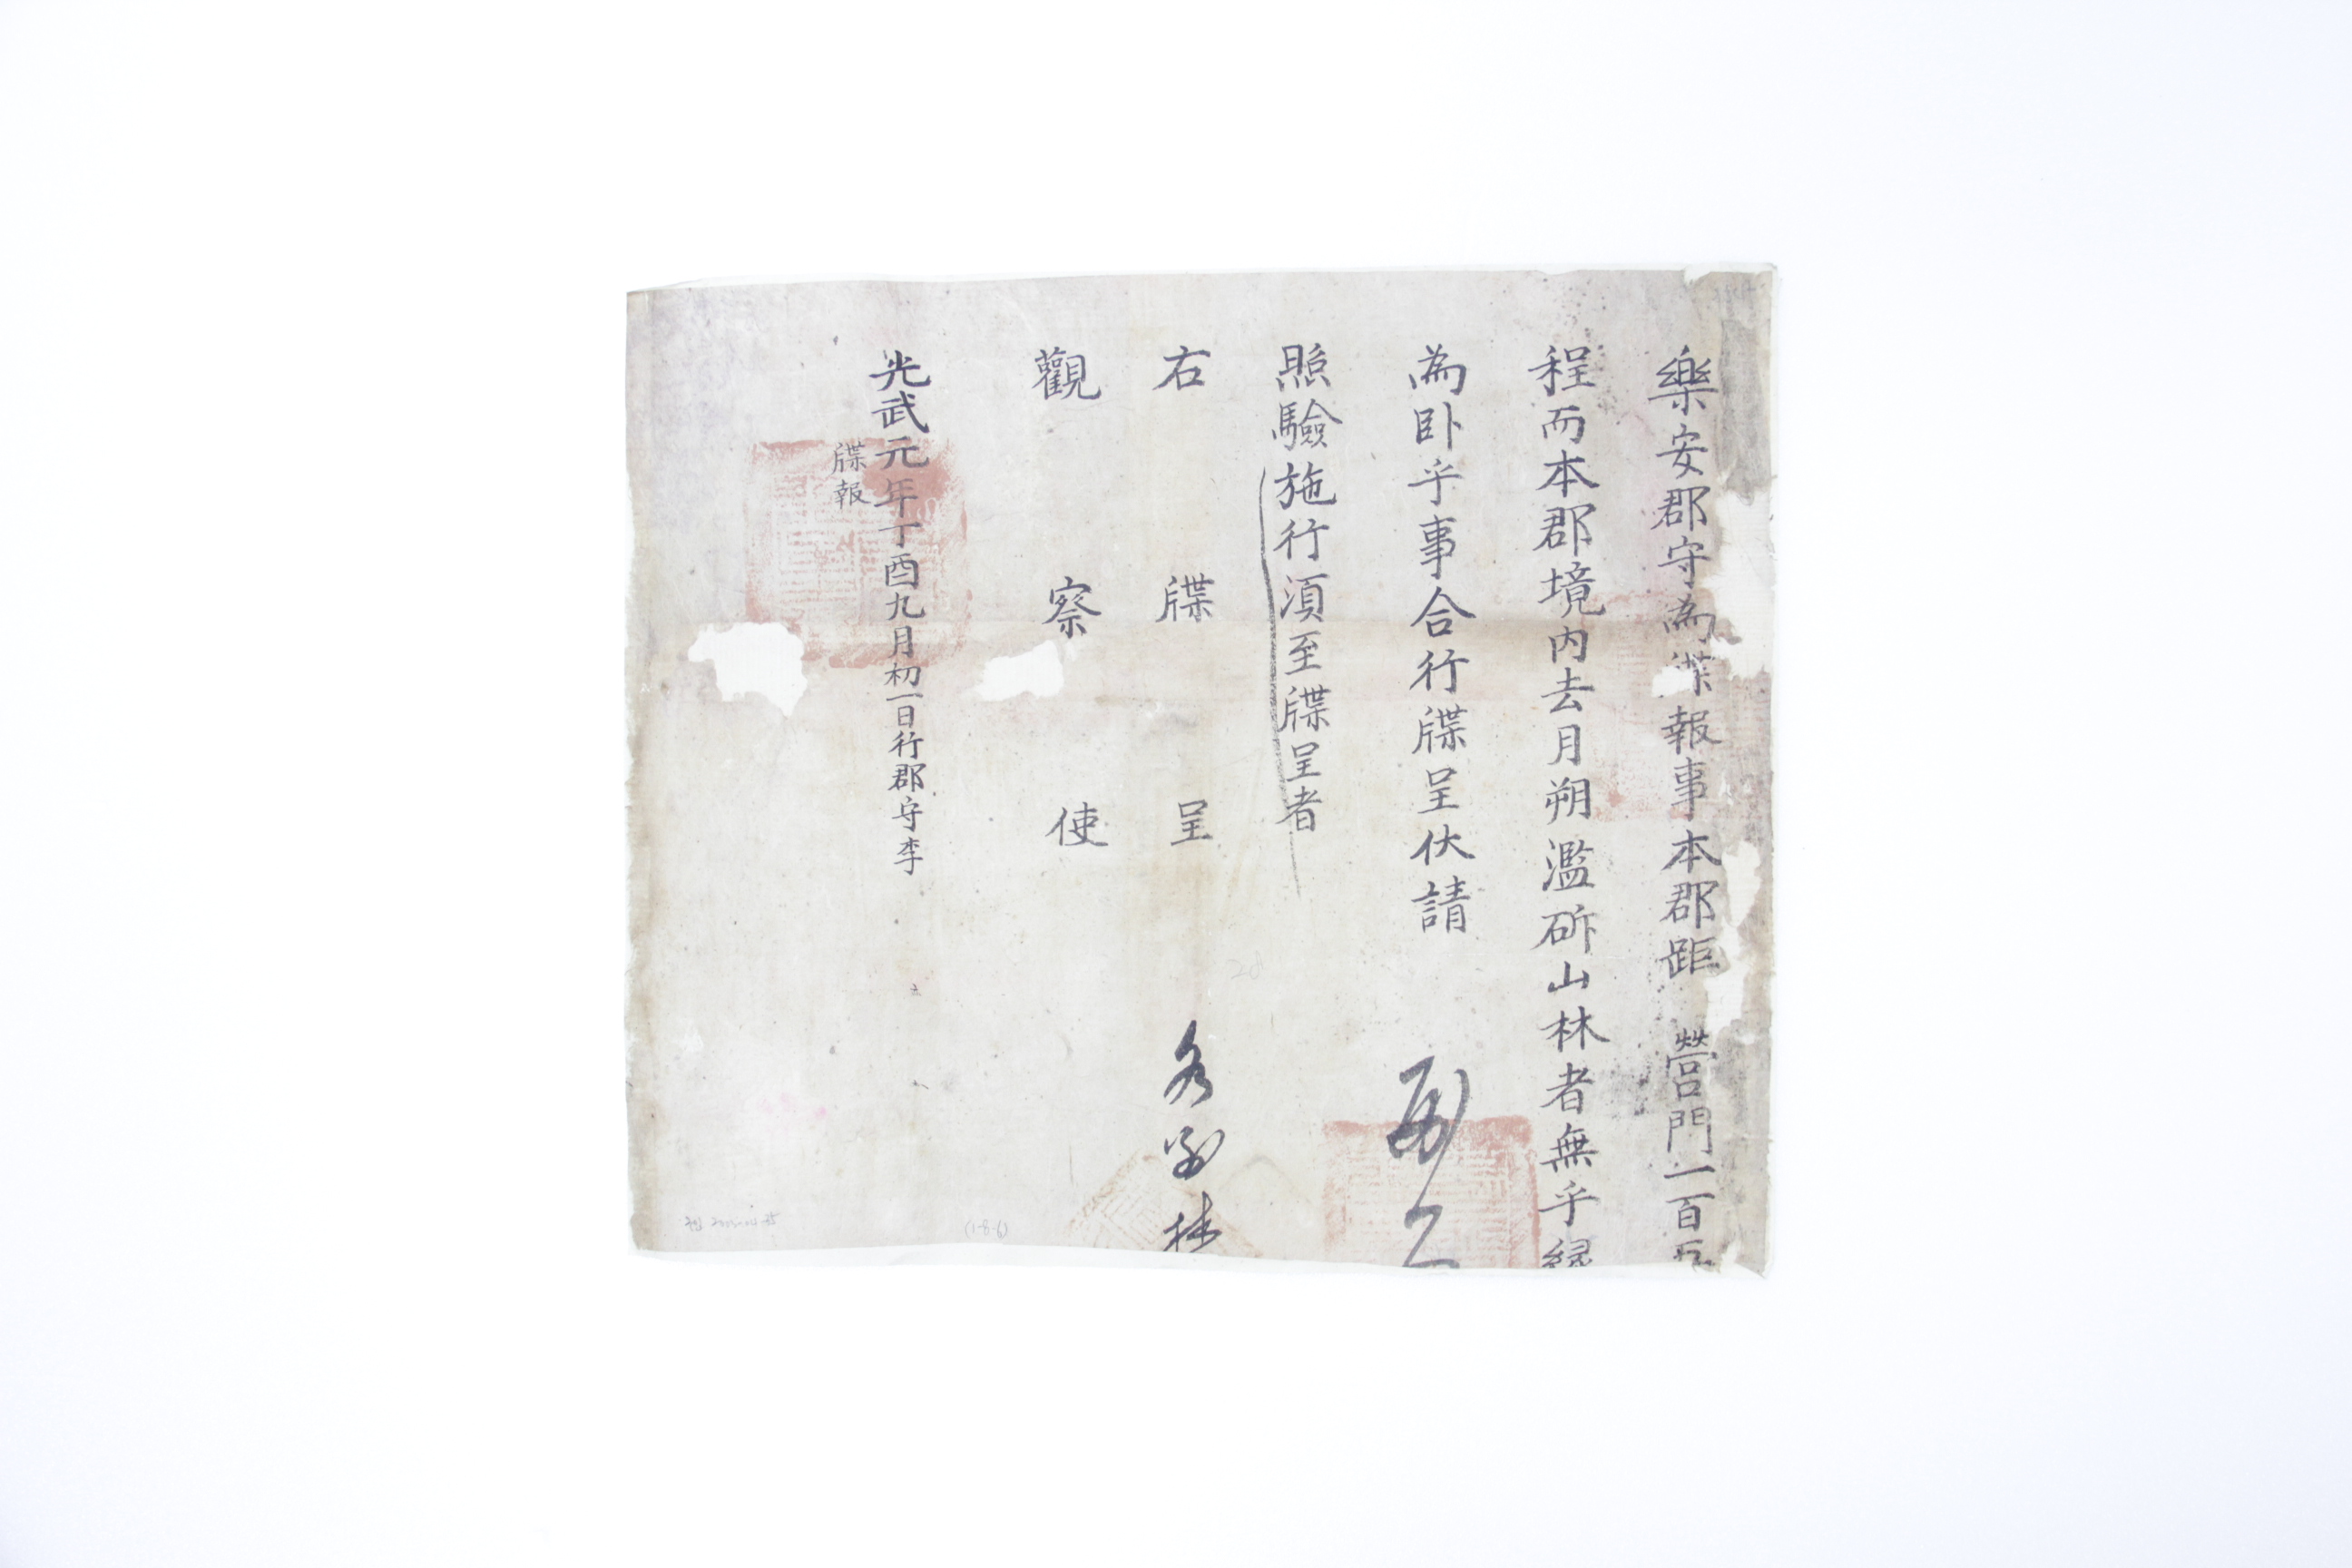 樂安郡守為牒報事本郡距 營門一百五
程而本郡境內去月朔濫斫山林者無乎緣
為卧乎事合行牒呈伏請
照驗施行須至牒呈者
右 牒 呈
觀 察 使
光武元年丁酉九月初一日行郡守李
牒報
(1-8-6)